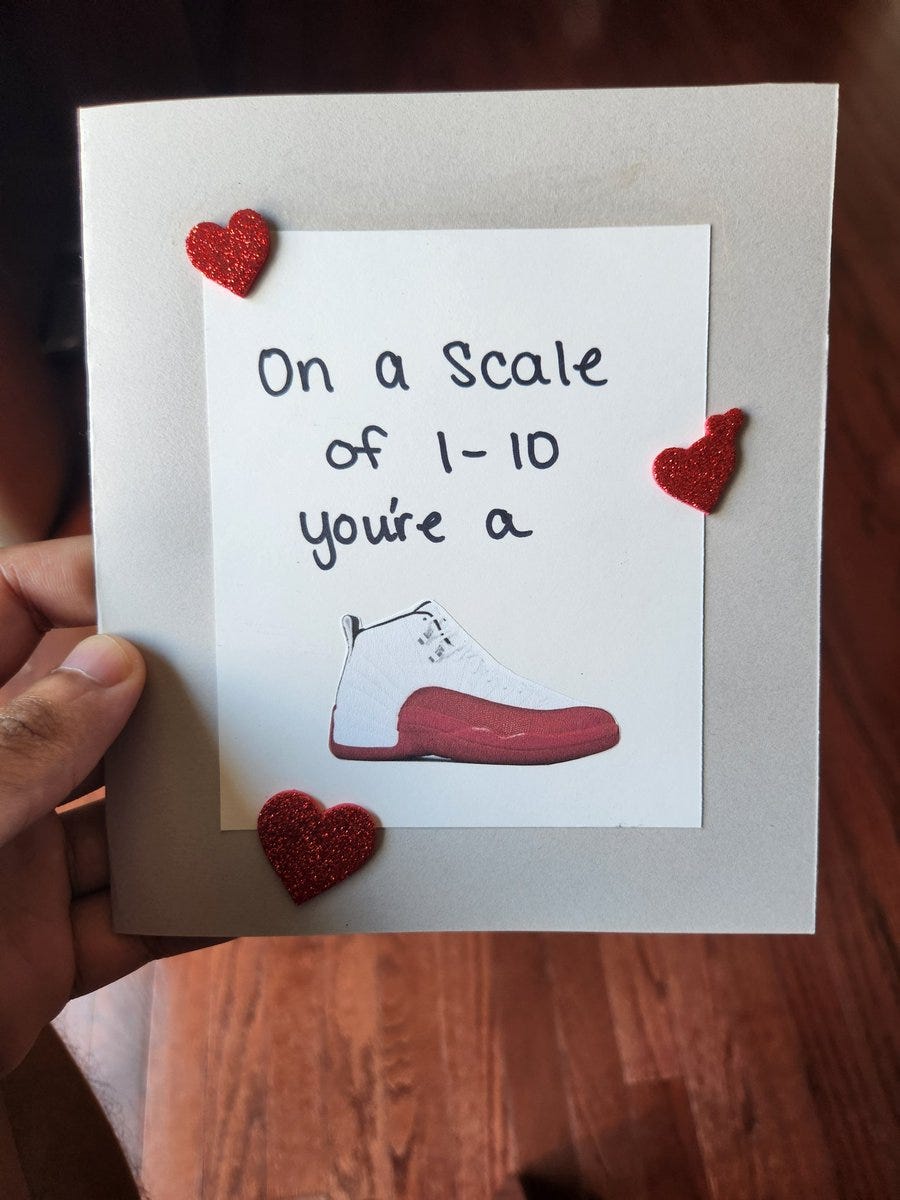 On a Scale
of 1-10
you're a